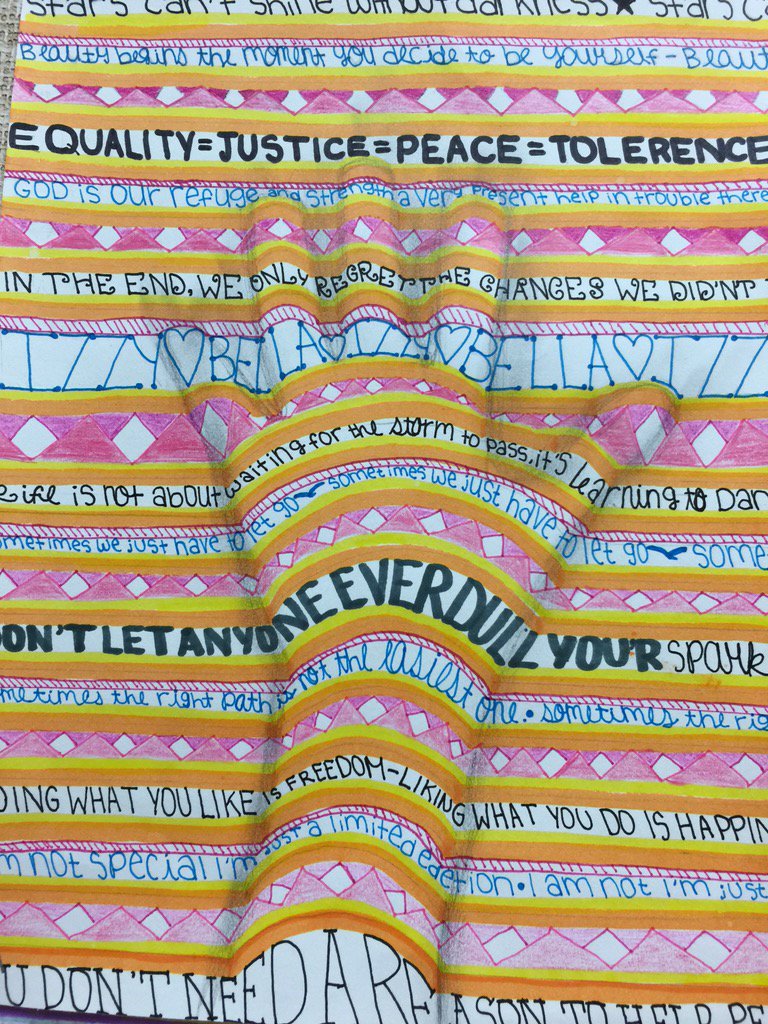 Stars can't shine without darkness ★ Stars
Beauty begins the moment you decide to be yourself - Beaut
EQUALITY = JUSTICE = PEACE = TOLERENCE
GOD is our refuge and strength a very present help in trouble there
IN THE END, WE ONLY REGRET THE CHANGES WE DIDN'T
IZZY♡BELLA♡IZZY♡BELLA♡IZZ
Life is not about waiting for the storm to pass, it's learning to Dan
ometimes we just have to let go sometimes we just have to let go some
DON'T LET ANYONE EVER DULL YOUR spark
ometimes the right path is not the easiest one • sometimes the rig
OING WHAT YOU LIKE IS FREEDOM-LIKING WHAT YOU DO IS HAPPIN
m not special I'm just a limited edetion • I am not I'm just
U DON'T NEED A REASON TO HELP PE